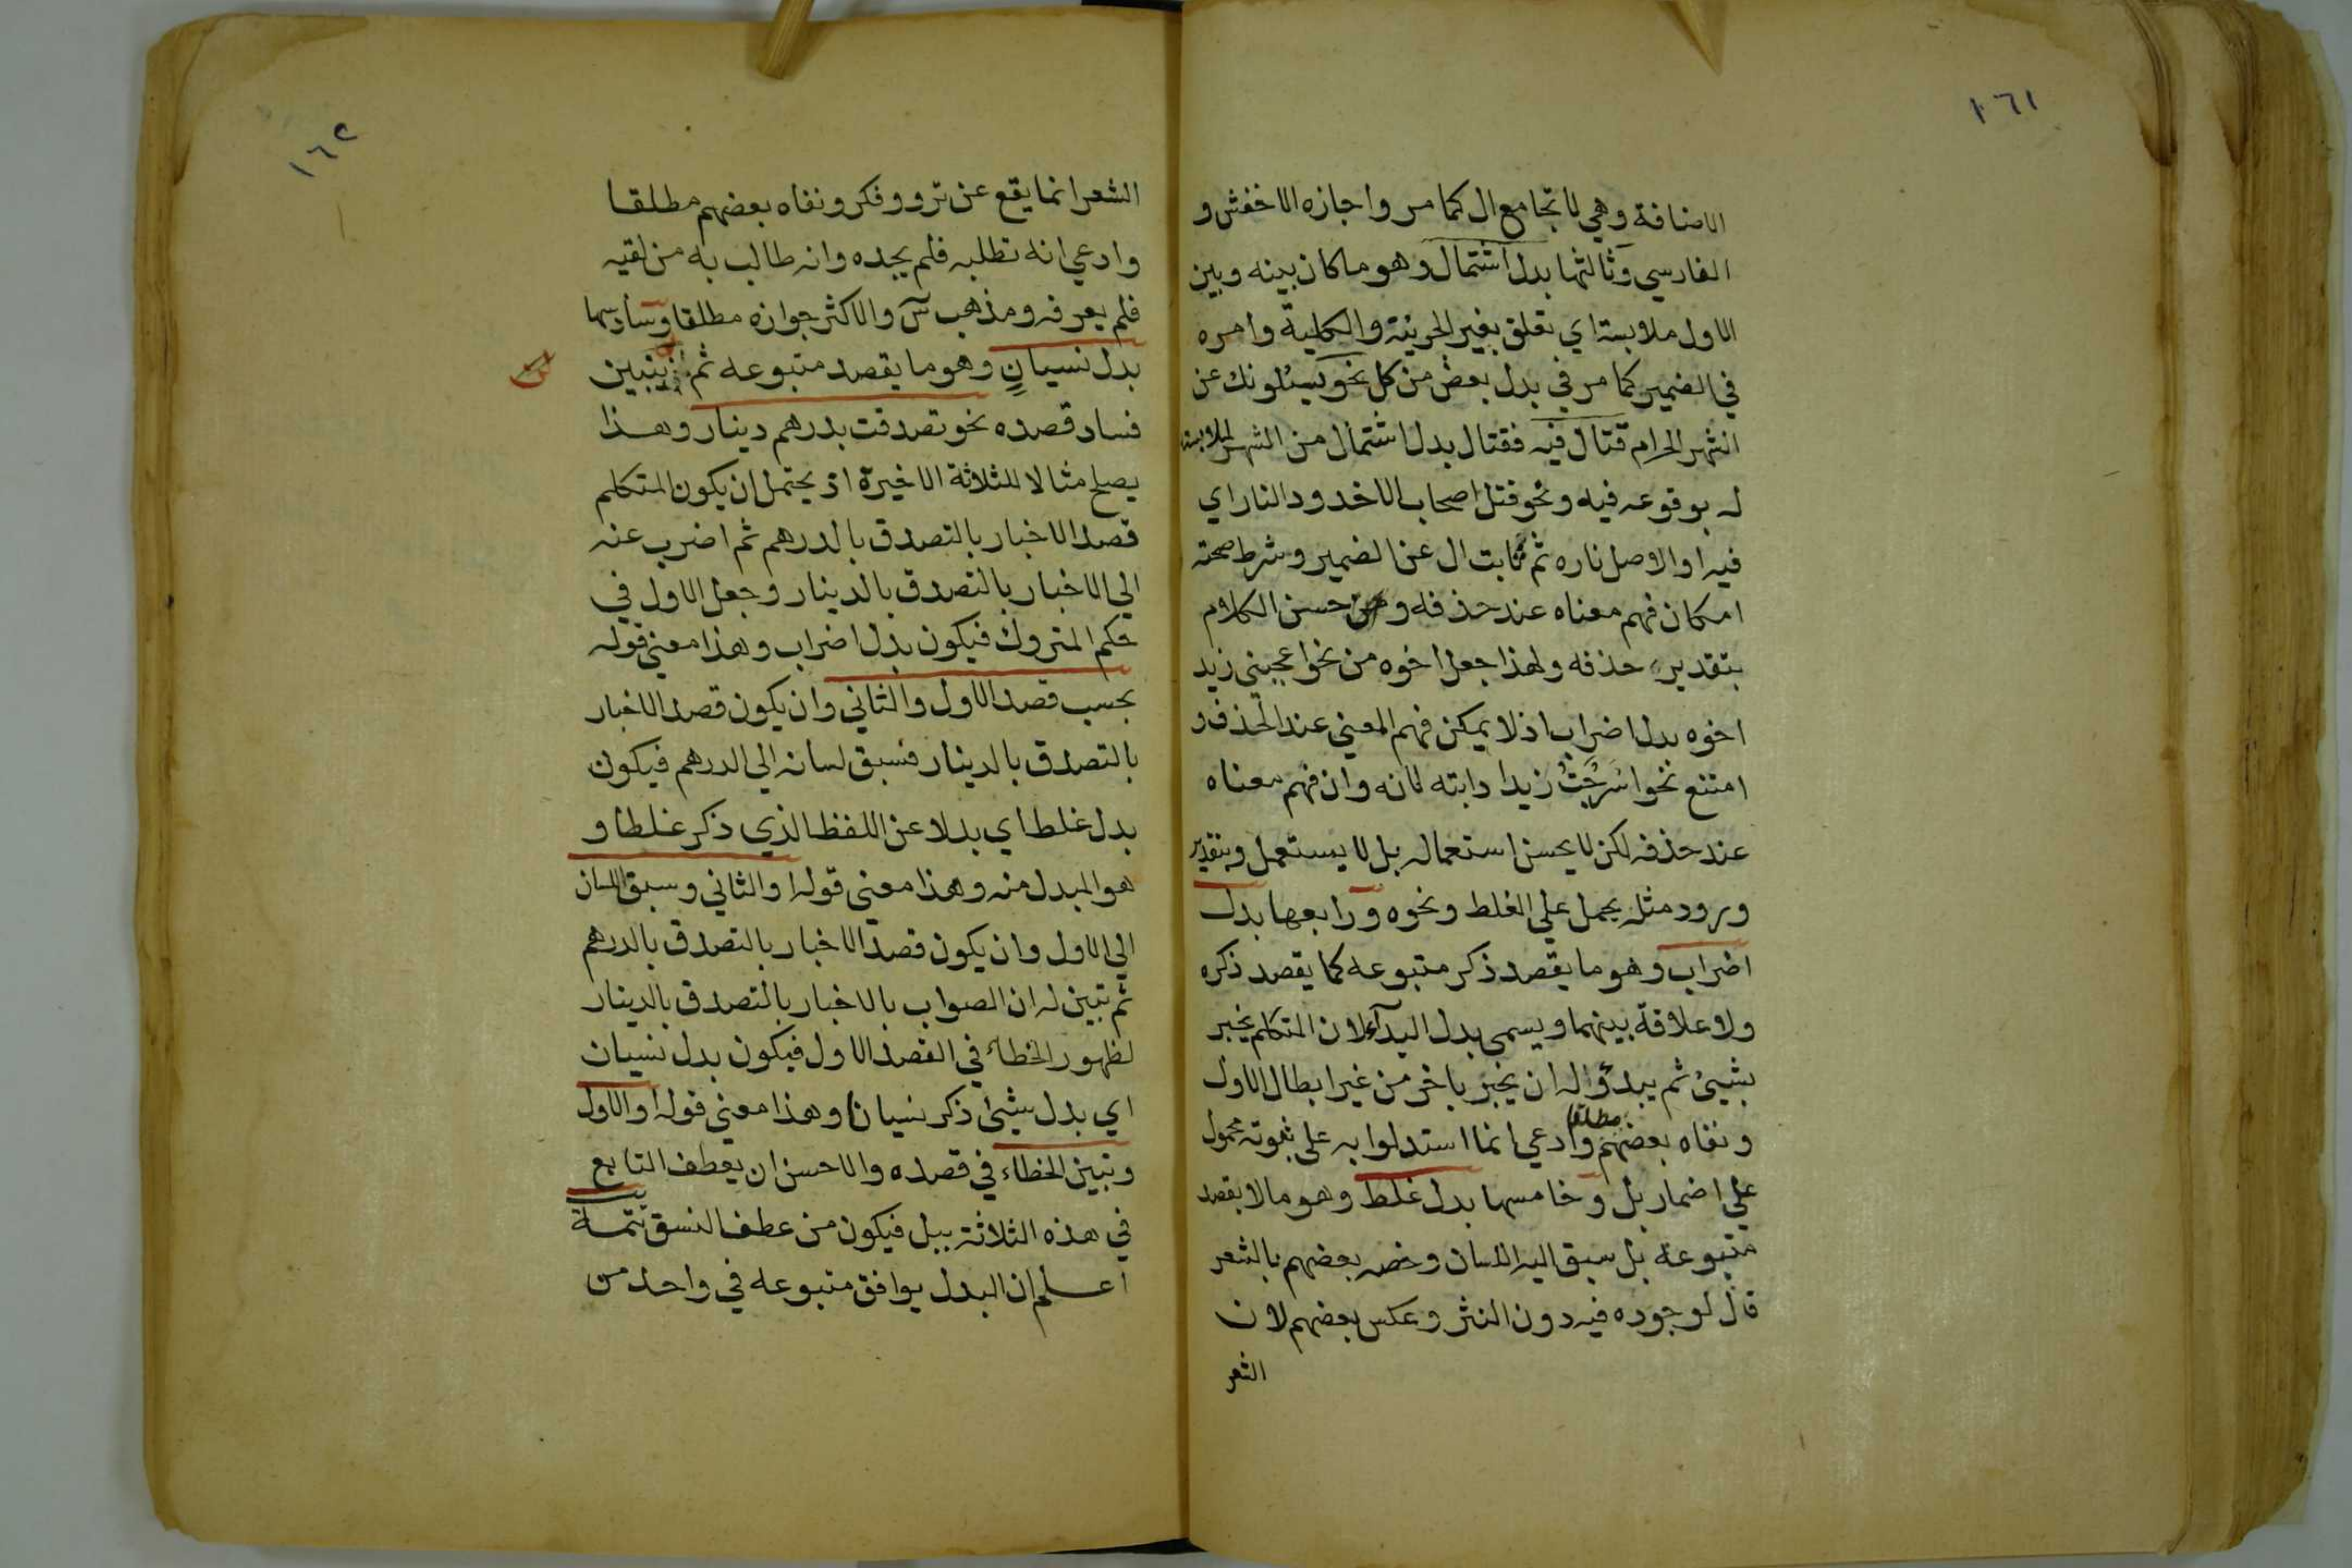 ١٦١
الاضافة وهي لا تجامع ال كما مر واجازه الاخفش و
الفارسي وثالثها بدل اشتمال وهو ما كان بينه وبين
الاول ملابسة اي تعلق بغير الجزئية والكلية وامره
في الضمير كما مر في بدل بعض من كل نحو يسئلونك عن
الشهر الحرام قتال فيه فقتال بدل اشتمال من الشهر لملابسته
له بوقوعه فيه ونحو قتل اصحاب الاخدود النار اي
فيه او الاصل ناره ثم نابت ال عن الضمير وشرط صحته
امكان فهم معناه عند حذفه و حسن الكلام
بتقدير حذفه ولهذا جعل اخوه من نحو اعجبني زيد
اخوه بدل اضراب اذ لا يمكن فهم المعني عند الحذف و
امتنع نحو اسرجت زيدا دابته لانه وان فهم معناه
عند حذفه لكن لا يحسن استعماله بل لا يستعمل وبتقدير
ورود مثله يحمل علي الغلط ونحوه ورابعها بدل
اضراب وهو ما يقصد ذكر متبوعه كما يقصد ذكره
ولا علاقة بينهما ويسمى بدل البدآء لان المتكلم يخبر
بشيئ ثم يبدؤا له ان يخبر باخر من غير ابطال الاول
ونفاه بعضهم مطلقا وادعي انما استدلوا به على ثبوته محمول
علي اضمار بل وخامسها بدل غلط وهو ما لا يقصد
متبوعه بل سبق اليه اللسان وخصه بعضهم بالشعر
قال لوجوده فيه دون النثر وعكس بعضهم لان
الشعر
١٦٢
الشعر انما يقع عن ترو وفكر ونفاه بعضهم مطلقا
وادعي انه تطلبه فلم يجده وانه طالب به من لقيه
فلم يعرفه ومذهب س والاكثر جوازه مطلقا وسادسها
بدل نسيان وهو ما يقصد متبوعه ثم يتبين
فساد قصده نحو تصدقت بدرهم دينار وهذا
يصلح مثالا للثلاثة الاخيرة اذ يحتمل ان يكون المتكلم
قصد الاخبار بالتصدق بالدرهم ثم اضرب عنه
الي الاخبار بالتصدق بالدينار وجعل الاول في
حكم المتروك فيكون بدل اضراب وهذا معني قوله
بحسب قصد الاول والثاني وان يكون قصد الاخبار
بالتصدق بالدينار فسبق لسانه الي الدرهم فيكون
بدل غلط اي بدلا عن اللفظ الذي ذكر غلطا و
هو المبدل منه وهذا معني قوله او الثاني وسبق اللسان
الي الاول وان يكون قصد الاخبار بالتصدق بالدرهم
ثم تبين له ان الصواب بالاخبار بالتصدق بالدينار
لظهور الخطاء في القصد الاول فيكون بدل نسيان
اي بدل شيئ ذكر نسيانا وهذا معني قوله او الاول
وتبين الخطاء في قصده والاحسن ان يعطف التابع
في هذه الثلاثة ببل فيكون من عطف النسق تتمة
اعلم ان البدل يوافق متبوعه في واحد من